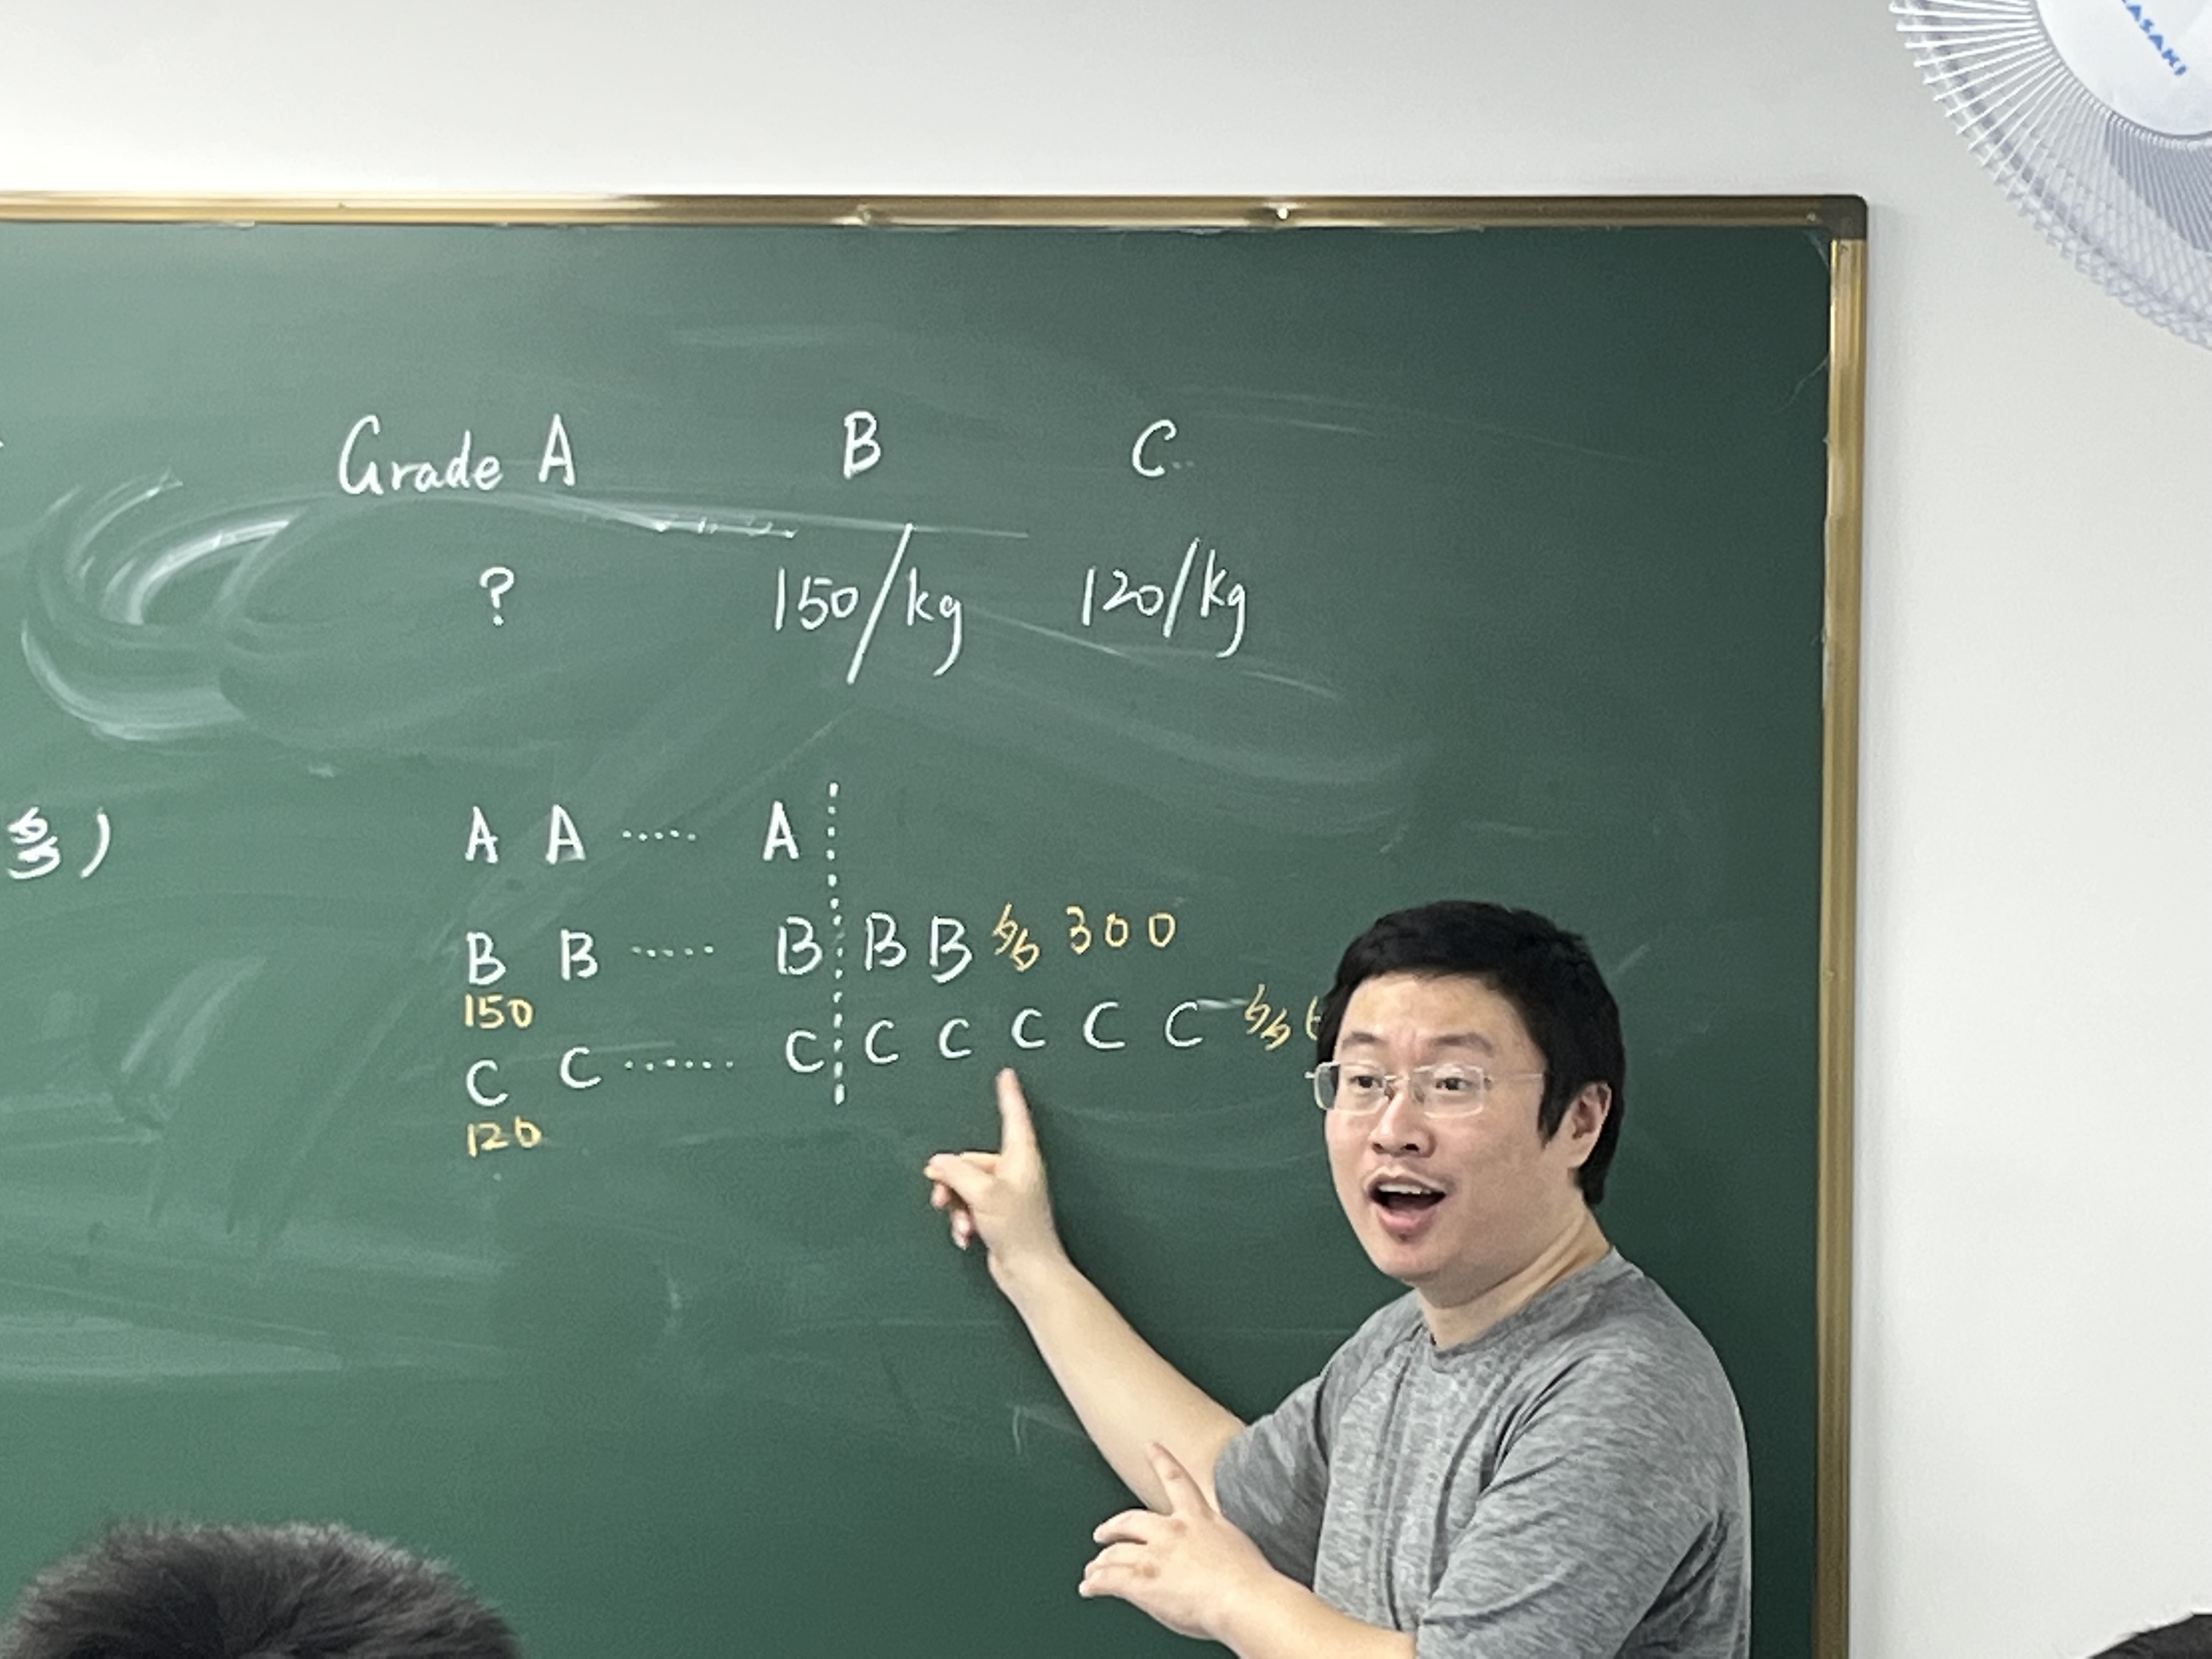 ASAKI
Grade A B C
? 150/kg 120/kg
多)
A A ...... A
B B ...... B B B 多 300
150
C C ...... C C C C C C 多 6
120